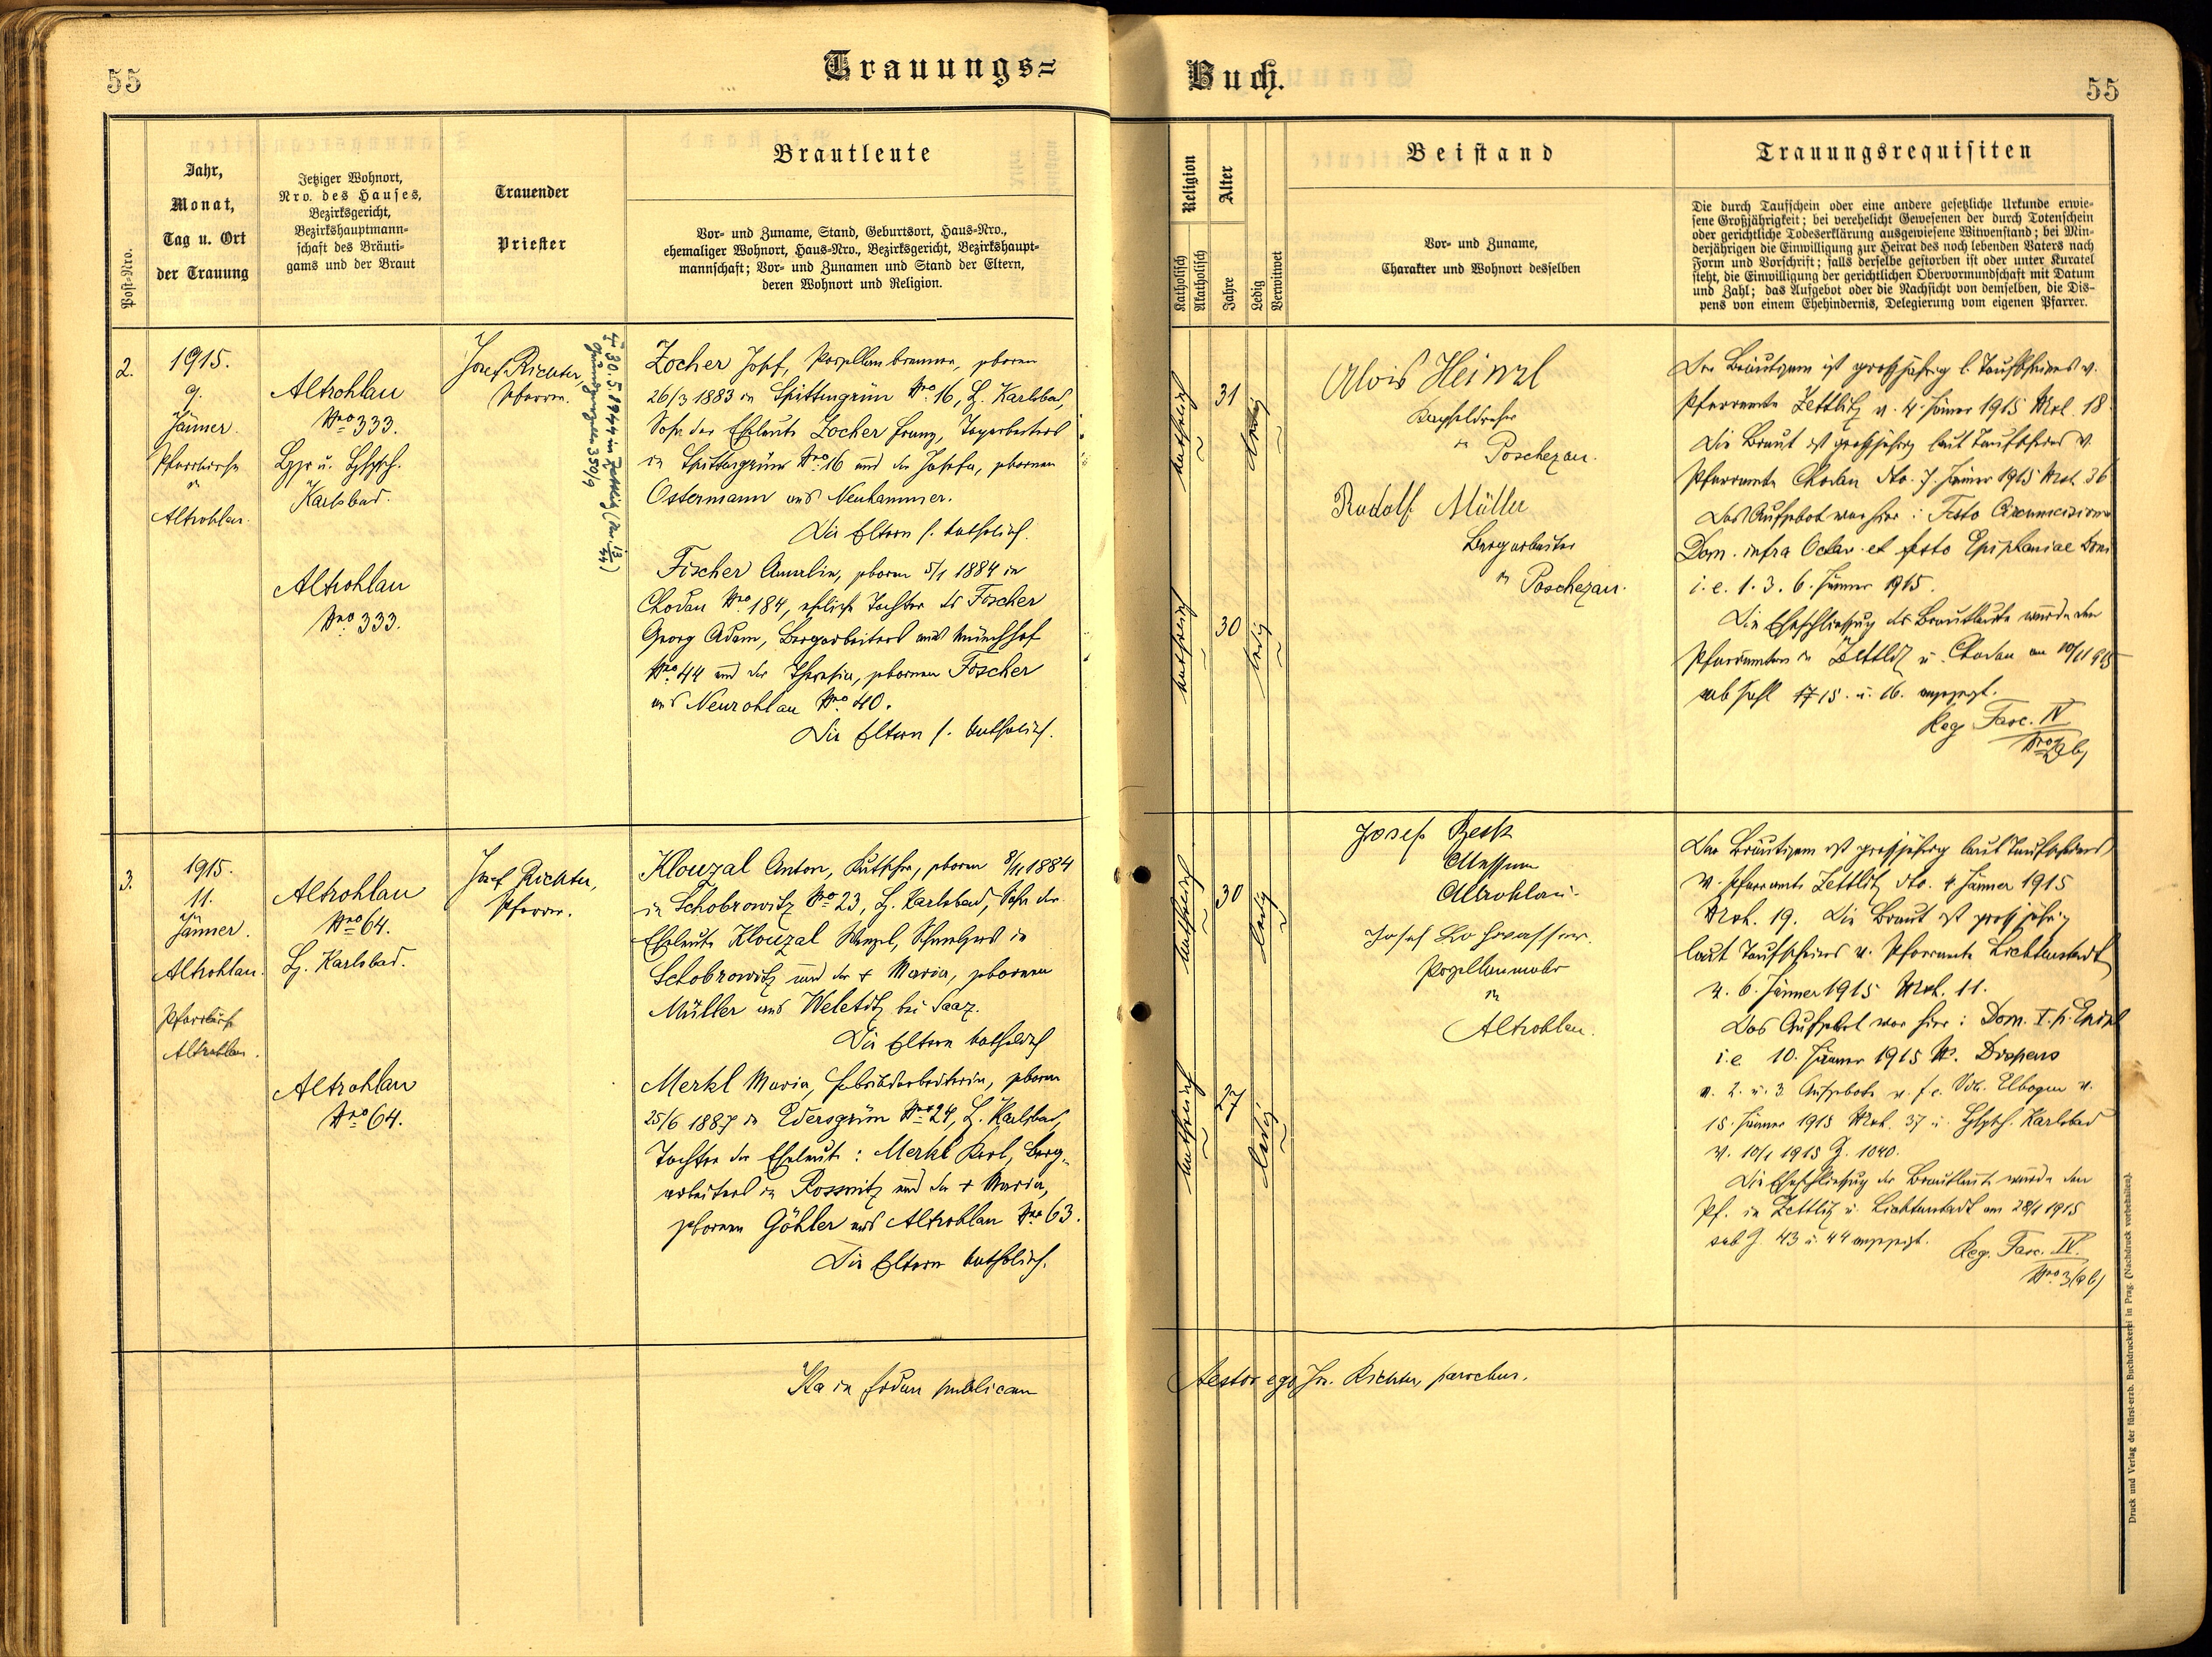 55
Trauungs=
Post-Nro.
Jahr,
Monat,
Tag u. Ort
der Trauung
Jetziger Wohnort,
Nro. des Hauses,
Bezirksgericht,
Bezirkshauptmann-
schaft des Bräuti-
gams und der Braut
Trauender
Priester
Brautleute
Vor- und Zuname, Stand, Geburtsort, Haus-Nro.,
ehemaliger Wohnort, Haus-Nro., Bezirksgericht, Bezirkshaupt-
mannschaft; Vor- und Zunamen und Stand der Eltern,
deren Wohnort und Religion.
2.
1915.
9.
Jänner.
Pfarrkirche
in
Altrohlau.
Altrohlau
Nro 333.
Karlsbad.
Altrohlau
Nro 333.
Josef Richter,
Pfarrer.
30.5.1944 in Zettlitz
Zocher Josef, Porzellanbrenner, geboren
26/3 1883 in Spittengrün Nro 16, B. Karlsbad,
Sohn der Eheleute Zocher Franz, Tagarbeiters
in Spittengrün Nro 16 und der Josefa, geborenen
Ostermann aus Neuhammer.
Die Eltern s. katholisch.
Fischer Amalia, geboren 5/1 1884 in
Chodau Nro 184, eheliche Tochter des Fischer
Georg Adam, Bergarbeiters aus Münchhof
Nro 44 und der Theresia, geborenen Fischer
aus Neurohlau Nro 40.
Die Eltern s. katholisch.
3.
1915.
11.
Jänner.
Altrohlau.
Pfarrkirche
Altrohlau.
Altrohlau
Nro 64.
B. Karlsbad.
Altrohlau
Nro 64.
Josef Richter,
Pfarrer.
Klouzal Anton, Kutscher, geboren 8/11 1884
in Schobrowitz Nro 23, B. Karlsbad, Sohn der
Eheleute Klouzal Wenzel, in
Schobrowitz und der + Maria, geborenen
Müller aus Weletitz bei Saaz.
Die Eltern katholisch
Merkl Maria, Fabriksarbeiterin, geboren
25/6 1887 in Edersgrün Nro 24, B. Karlsbad,
Tochter der Eheleute: Merkl Karl, Berg-
arbeiters in Rossnitz und der + Maria,
geborenen Göhler aus Altrohlau Nro 63.
Die Eltern katholisch.
Ita in fidem publicam
Buch.
55
Religion
Katholisch
Akatholisch
Alter
Jahre
Ledig
Verwitwet
Beistand
Vor- und Zuname,
Charakter und Wohnort desselben
Trauungsrequisiten
Die durch Taufschein oder eine andere gesetzliche Urkunde erwie-
sene Großjährigkeit; bei verehelicht Gewesenen der durch Totenschein
oder gerichtliche Todeserklärung ausgewiesene Witwenstand; bei Min-
derjährigen die Einwilligung zur Heirat des noch lebenden Vaters nach
Form und Vorschrift; falls derselbe gestorben ist oder unter Kuratel
steht, die Einwilligung der gerichtlichen Obervormundschaft mit Datum
und Zahl; das Aufgebot oder die Nachsicht von demselben, die Dis-
pens von einem Ehehindernis, Delegierung vom eigenen Pfarrer.
katholisch
31
ledig
katholisch
30
ledig
Alois Heinzl
in Poschezau.
Rudolf Müller
Bergarbeiter
in Poschezau.
Der Bräutigam ist großjährig l. Taufscheines v.
Pfarramte Zettlitz v. 4. Jänner 1915 Nrot. 18
Die Braut ist großjährig laut Taufscheines v.
Pfarramte Chodau dto. 7. Jänner 1915 Nrot. 36
Das Aufgebot war hier: Festo Circumcisionis
Dom. infra Octav. et festo Epiphaniae Domi
i. e. 1. 3. 6. Jänner 1915.
Die Eheschließung der Brautleute wurde den
Pfarrämtern in Zettlitz u. Chodau am 10/1 1915
sub Zahl 15. u. 16. angezeigt.
Reg. Fasc. IV
katholisch
30
ledig
katholisch
27
ledig
Josef
Messner
Altrohlau.
Josef Lohwasser.
Porzellanmaler
in
Altrohlau.
Der Bräutigam ist großjährig laut Taufscheines
v. Pfarramte Zettlitz dto. 4. Jänner 1915
Nrot. 19. Die Braut ist großjährig
laut Taufscheines v. Pfarramte Lichtenstadt
v. 6. Jänner 1915 Nrot. 11.
Das Aufgebot war hier: Dom. I. p. Epiph
i. e. 10. Jänner 1915 Dispens
v. 2. u. 3. Aufgebote v. f. e. Vik. Elbogen v.
15. Jänner 1915 Nrot. 37 u. Karlsbad
v. 10/1 1915 Z. 1040.
Die Eheschließung der Brautleute wurde den
Pf. in Zettlitz u. Lichtenstadt am 28/1 1915
sub Z. 43 u. 44 angezeigt.
Reg. Fasc. IV.
Nro 3/a b)
testor ego Jos. Richter, parochus.
Druck und Verlag der fürst-erzb. Buchdruckerei in Prag. (Nachdruck vorbehalten).